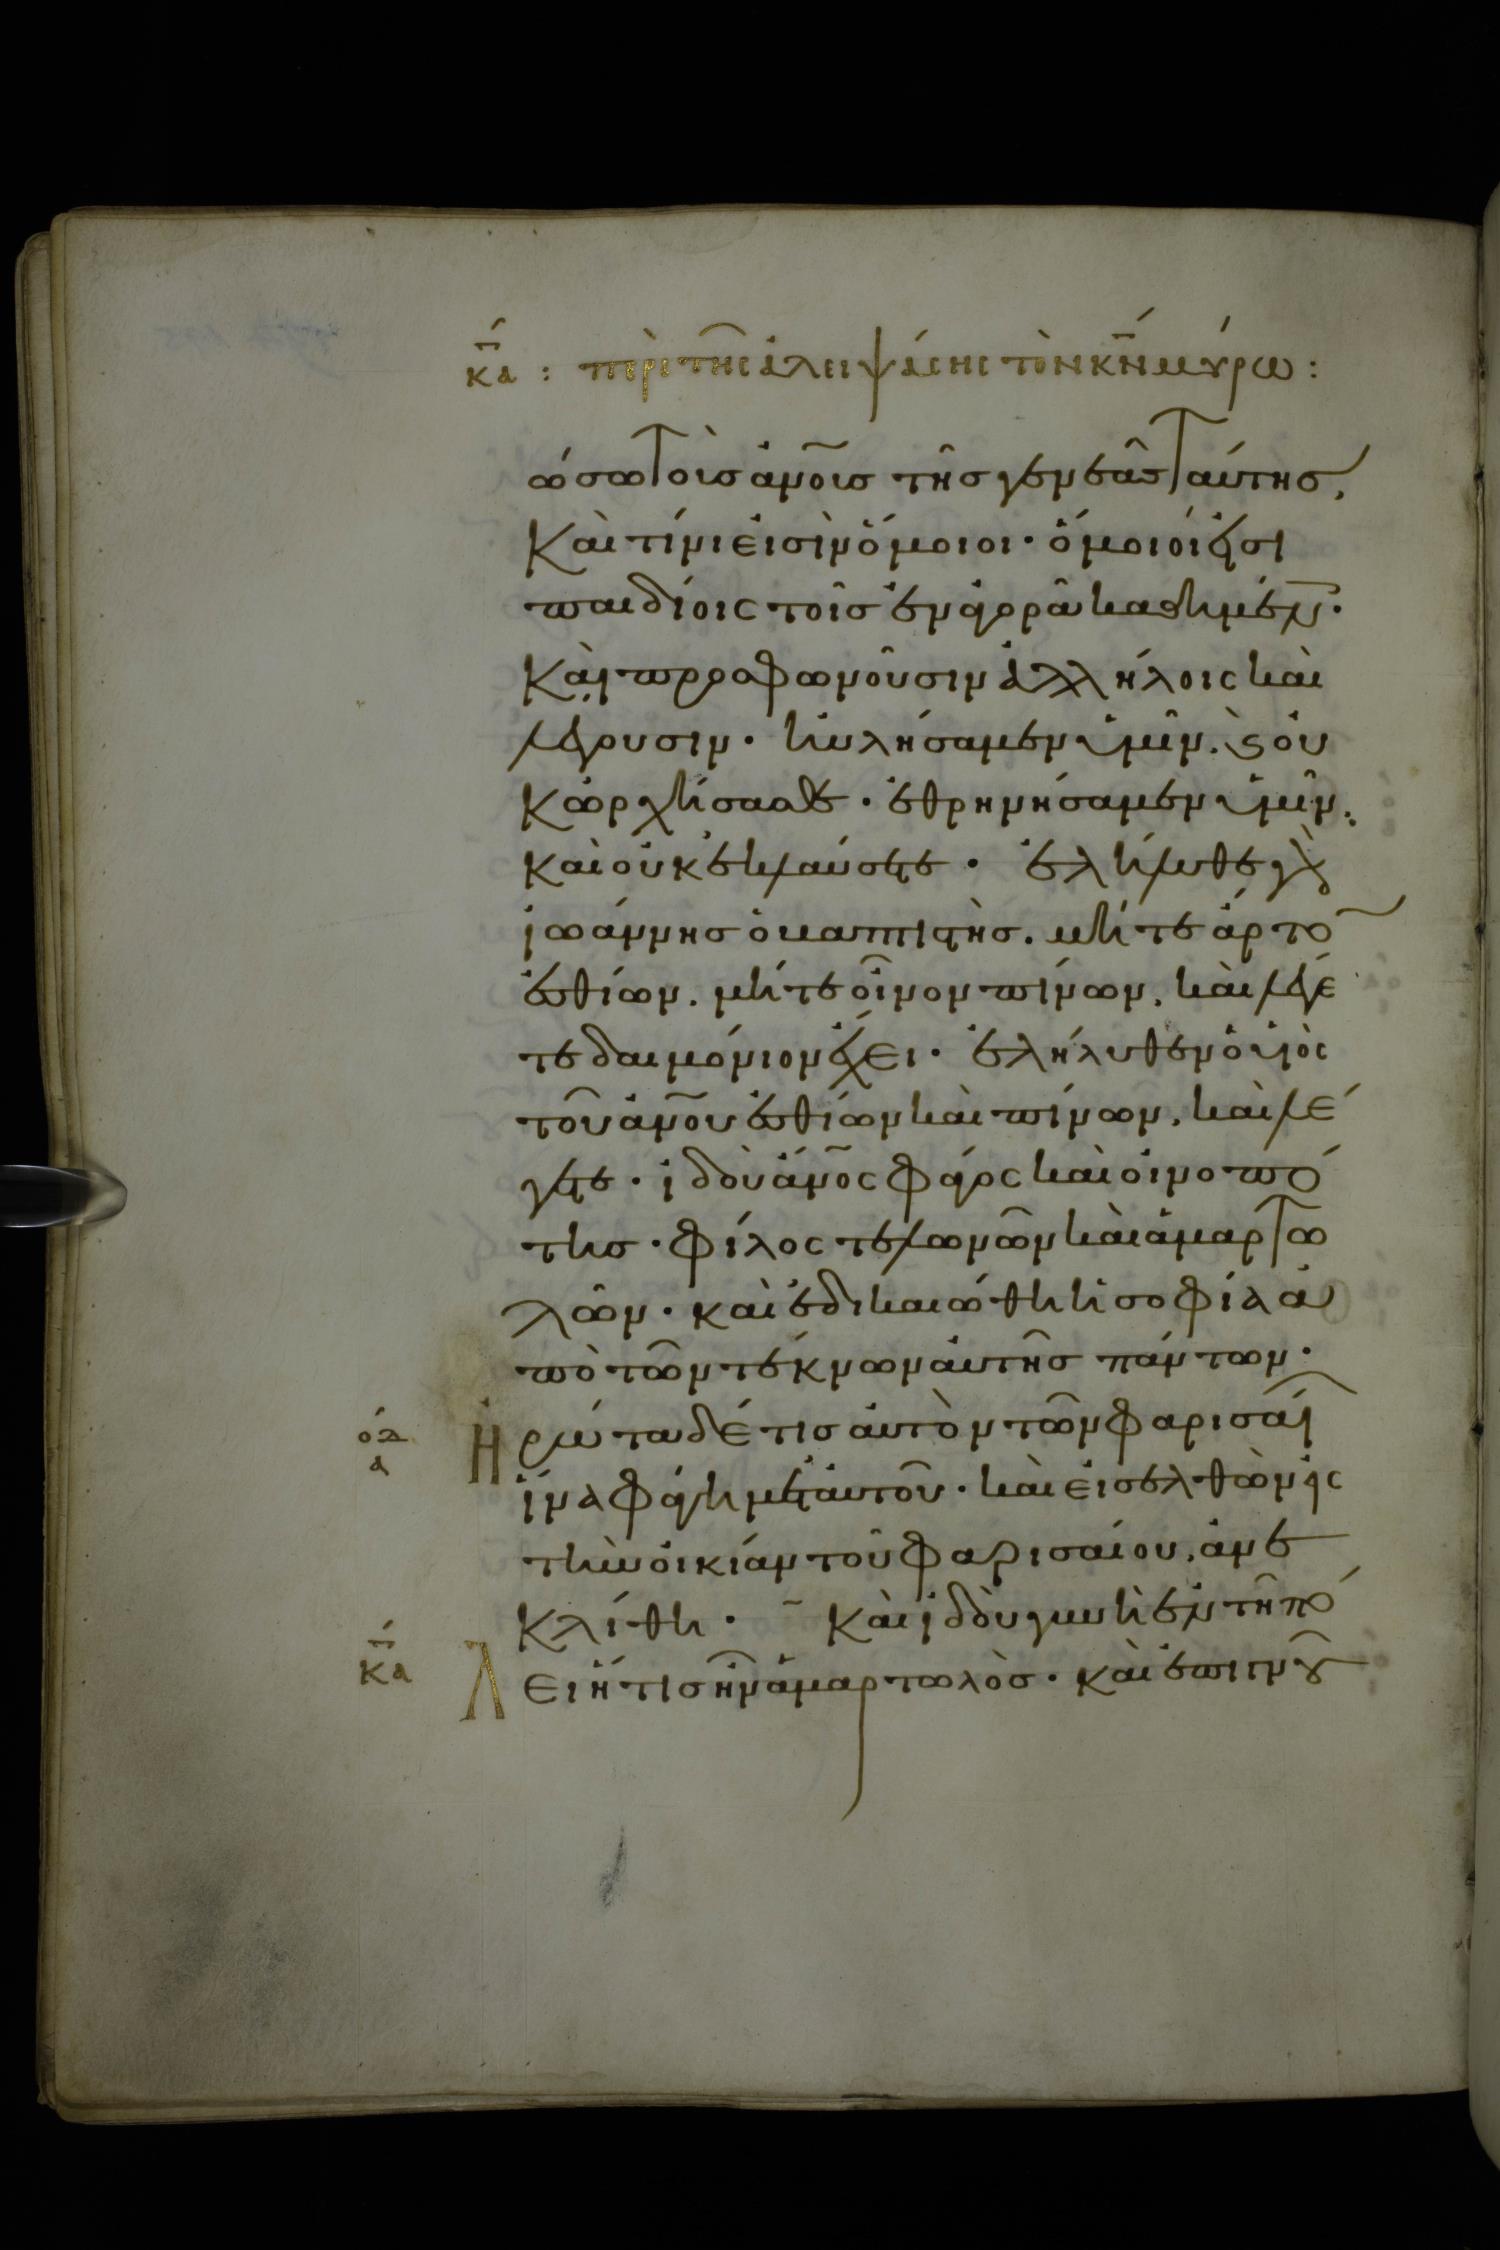 κα : περὶ τῆς ἀλειψάσης τὸν κ̅ν̅ μύρω :
ώσω τοὺς ἀν̅ους τῆς γενεᾶς ταύτης,
Καὶ τίνι εἰσὶν ὅμοιοι· ὅμοιοί εἰσι
παιδίοις τοῖς ἐν ἀγορᾶ καθημέν̅·
Καὶ προσφωνοῦσιν ἀλλήλοις καὶ
λέγουσιν· ηὐλήσαμεν ὑμῖν. καὶ οὐ
κ ὠρχήσασθε· ἐθρηνήσαμεν ὑμῖν.
καὶ οὐκ ἐκλαύσατε· ἐλήλυθε γὰρ
ἰωάννης ὁ βαπτιστὴς. μήτε ἄρτο̅
ἐσθίων. μήτε οἶνον πίνων. καὶ λέγε
τε δαιμόνιον ἔχει· ἐλήλυθεν ὁ υἱὸς
τοῦ ἀν̅ου ἐσθίων καὶ πίνων. καὶ λέ
γετε· ἰδοὺ ἄν̅ος φάγος καὶ οἰνοπό
της· φίλος τελωνῶν καὶ ἁμαρτω
λῶν· καὶ ἐδικαιώθη ἡ σοφία ἀ
πὸ τῶν τέκνων αὐτῆς πάντων·
οδ
α
Ἠρώτα δέ τις αὐτὸν τῶν φαρισαί
ἵνα φάγη μετ αὐτοῦ· καὶ εἰσελθὼν εἰς
τὴν οἰκίαν τοῦ φαρισαίου. ἀνε
κλίθη· Καὶ ἰδοὺ γυνὴ ἐν τῆ πό
κα
λει ἥτις ἦν ἁμαρτωλὸς· καὶ ἐπιγνοῦ